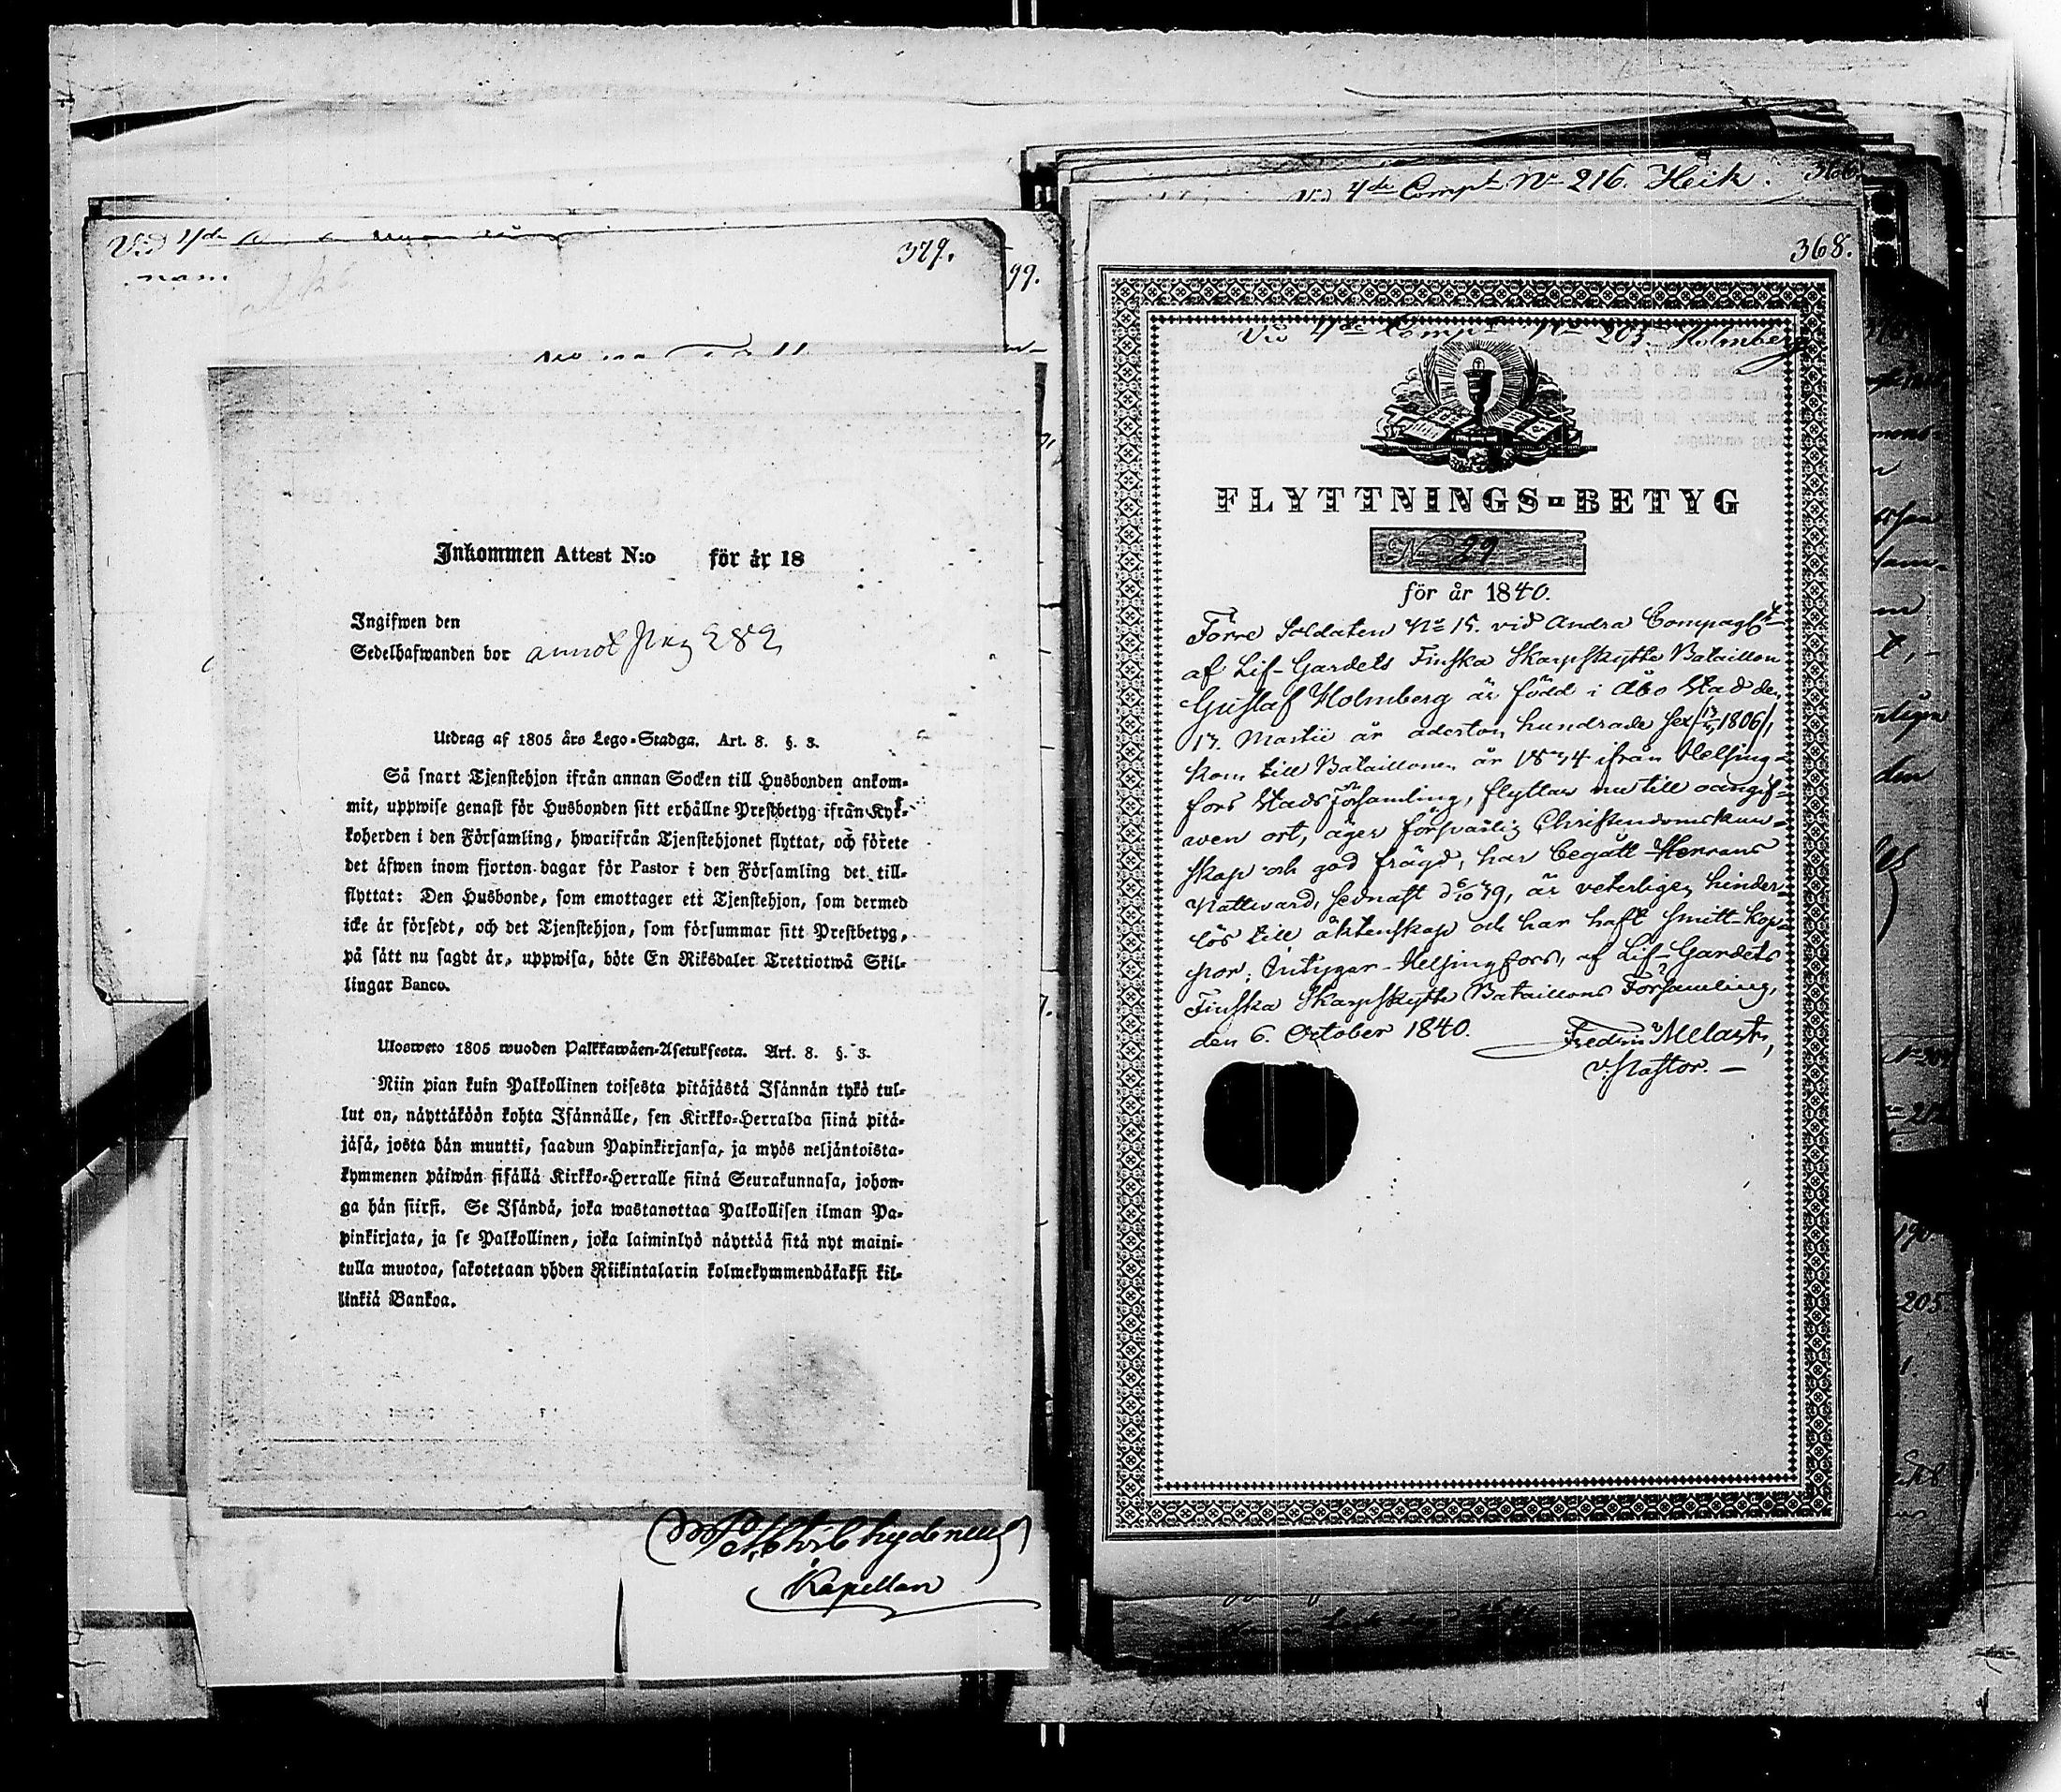 379.
99.
Inkommen Attest N:o för år 18
Ingifwen den
Sedelhafwanden bor annot pag 282
Utdrag af 1805 års Lego-Stadga. Art. 8. §. 3.
Så snart Tjenstehjon ifrån annan Socken till Husbonden ankom-
mit, uppwise genast för Husbonden sitt erhållne Prestbetyg ifrån Kyr-
koherden i den Församling, hwarifrån Tjenstehjonet flyttat, och förete
det äfwen inom fjorton dagar för Pastor i den Församling det till-
flyttat: Den Husbonde, som emottager ett Tjenstehjon, som dermed
icke är försedt, och det Tjenstehjon, som försummar sitt Prestbetyg,
på sätt nu sagdt är, uppwisa, böte En Riksdaler Trettiotwå Skil-
lingar Banco.
Ulosweto 1805 wuoden Palkkawäen-Asetuksesta. Art. 8. §. 3.
Niin pian kuin Palkollinen toisesta pitäjästä Isännän tykö tul-
lut on, näyttäköön kohta Isännälle, sen Kirkko-Herralda siinä pitä-
jäsä, josta hän muutti, saadun Papinkirjansa, ja myös neljäntoista-
kymmenen päiwän sisällä Kirkko-Herralle siinä Seurakunnasa, johon-
ga hän siirsi. Se Isändä, joka wastanottaa Palkollisen ilman Pa-
pinkirjata, ja se Palkollinen, joka laiminlyö näyttää sitä nyt maini-
tulla muotoa, sakotetaan yhden Riikintalarin kolmekymmendäkaksi kil-
linkiä Bankoa.
Kapellan
Vid 4de Compt. No 216. Heik. 366.
368.
Vid 4de Compt No 203. Holmberg
FLYTTNINGS-BETYG
No 29
för år 1840.
Förre Soldaten No 15. vid Andra Compagt
af Lif-Gardets Finska Skarpskytte Bataillon
Gustaf Holmberg är född i Åbo Stad den
17. Martii år aderton hundrade sex 1806,
kom till Bataillonen år 1834 ifrån Helsing-
fors Stads församling, flyttar nu till oangif-
wen ort, äger försvarlig Christendomskun-
skap och god frägd, har begått Herrans
Nattvard, sednast d 6/10 39, är veterligen hinder-
lös till äktenskap och har haft Smitt-kop-
por; Intygar-Helsingfors, af Lif-Gardets
Finska Skarpskytte Bataillons Församling,
den 6. October 1840. Fredric Melart,
v. Pastor.
205